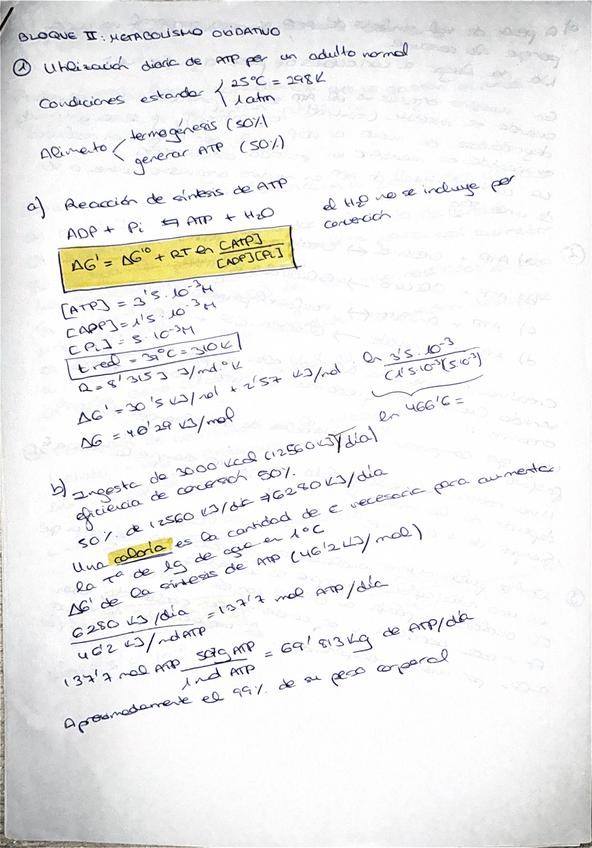 BLOQUE II: METABOLISMO OXIDATIVO
① Utilización diaria de ATP por un adulto normal
Condiciones estandar { 25°C = 298K
1 atm
Alimento < termogénesis (50%)
generar ATP (50%)
a) Reacción de síntesis de ATP
ADP + Pi ⇆ ATP + H2O
el H2O no se incluye por convención
ΔG' = ΔG'° + RT ln [ATP] / [ADP][Pi]
[ATP] = 3'5·10⁻³M
[ADP] = 1'5·10⁻³M
[Pi] = 5·10⁻³M
t red = 37°C = 310K
R = 8'315J J/mol·°K
ln 3'5·10⁻³ / (1'5·10⁻³)(5·10⁻³)
ln 466'6 =
ΔG' = 30'5 KJ/mol + 2'57 KJ/mol
ΔG = 46'29 KJ/mol
b) Ingesta de 3000 Kcal (12560 KJ/día)
eficiencia de conversión 50%.
50% de 12560 KJ/día → 6280 KJ/día
Una caloría es la cantidad de E necesaria para aumentar
la Tª de 1g de agua en 1°C
ΔG' de la síntesis de ATP (46'2 KJ/mol)
6280 KJ/día / 46'2 KJ/mol ATP = 137'7 mol ATP/día
137'7 mol ATP 507g ATP / 1 mol ATP = 69'813 Kg de ATP/día
Aproximadamente el 99% de su peso corporal